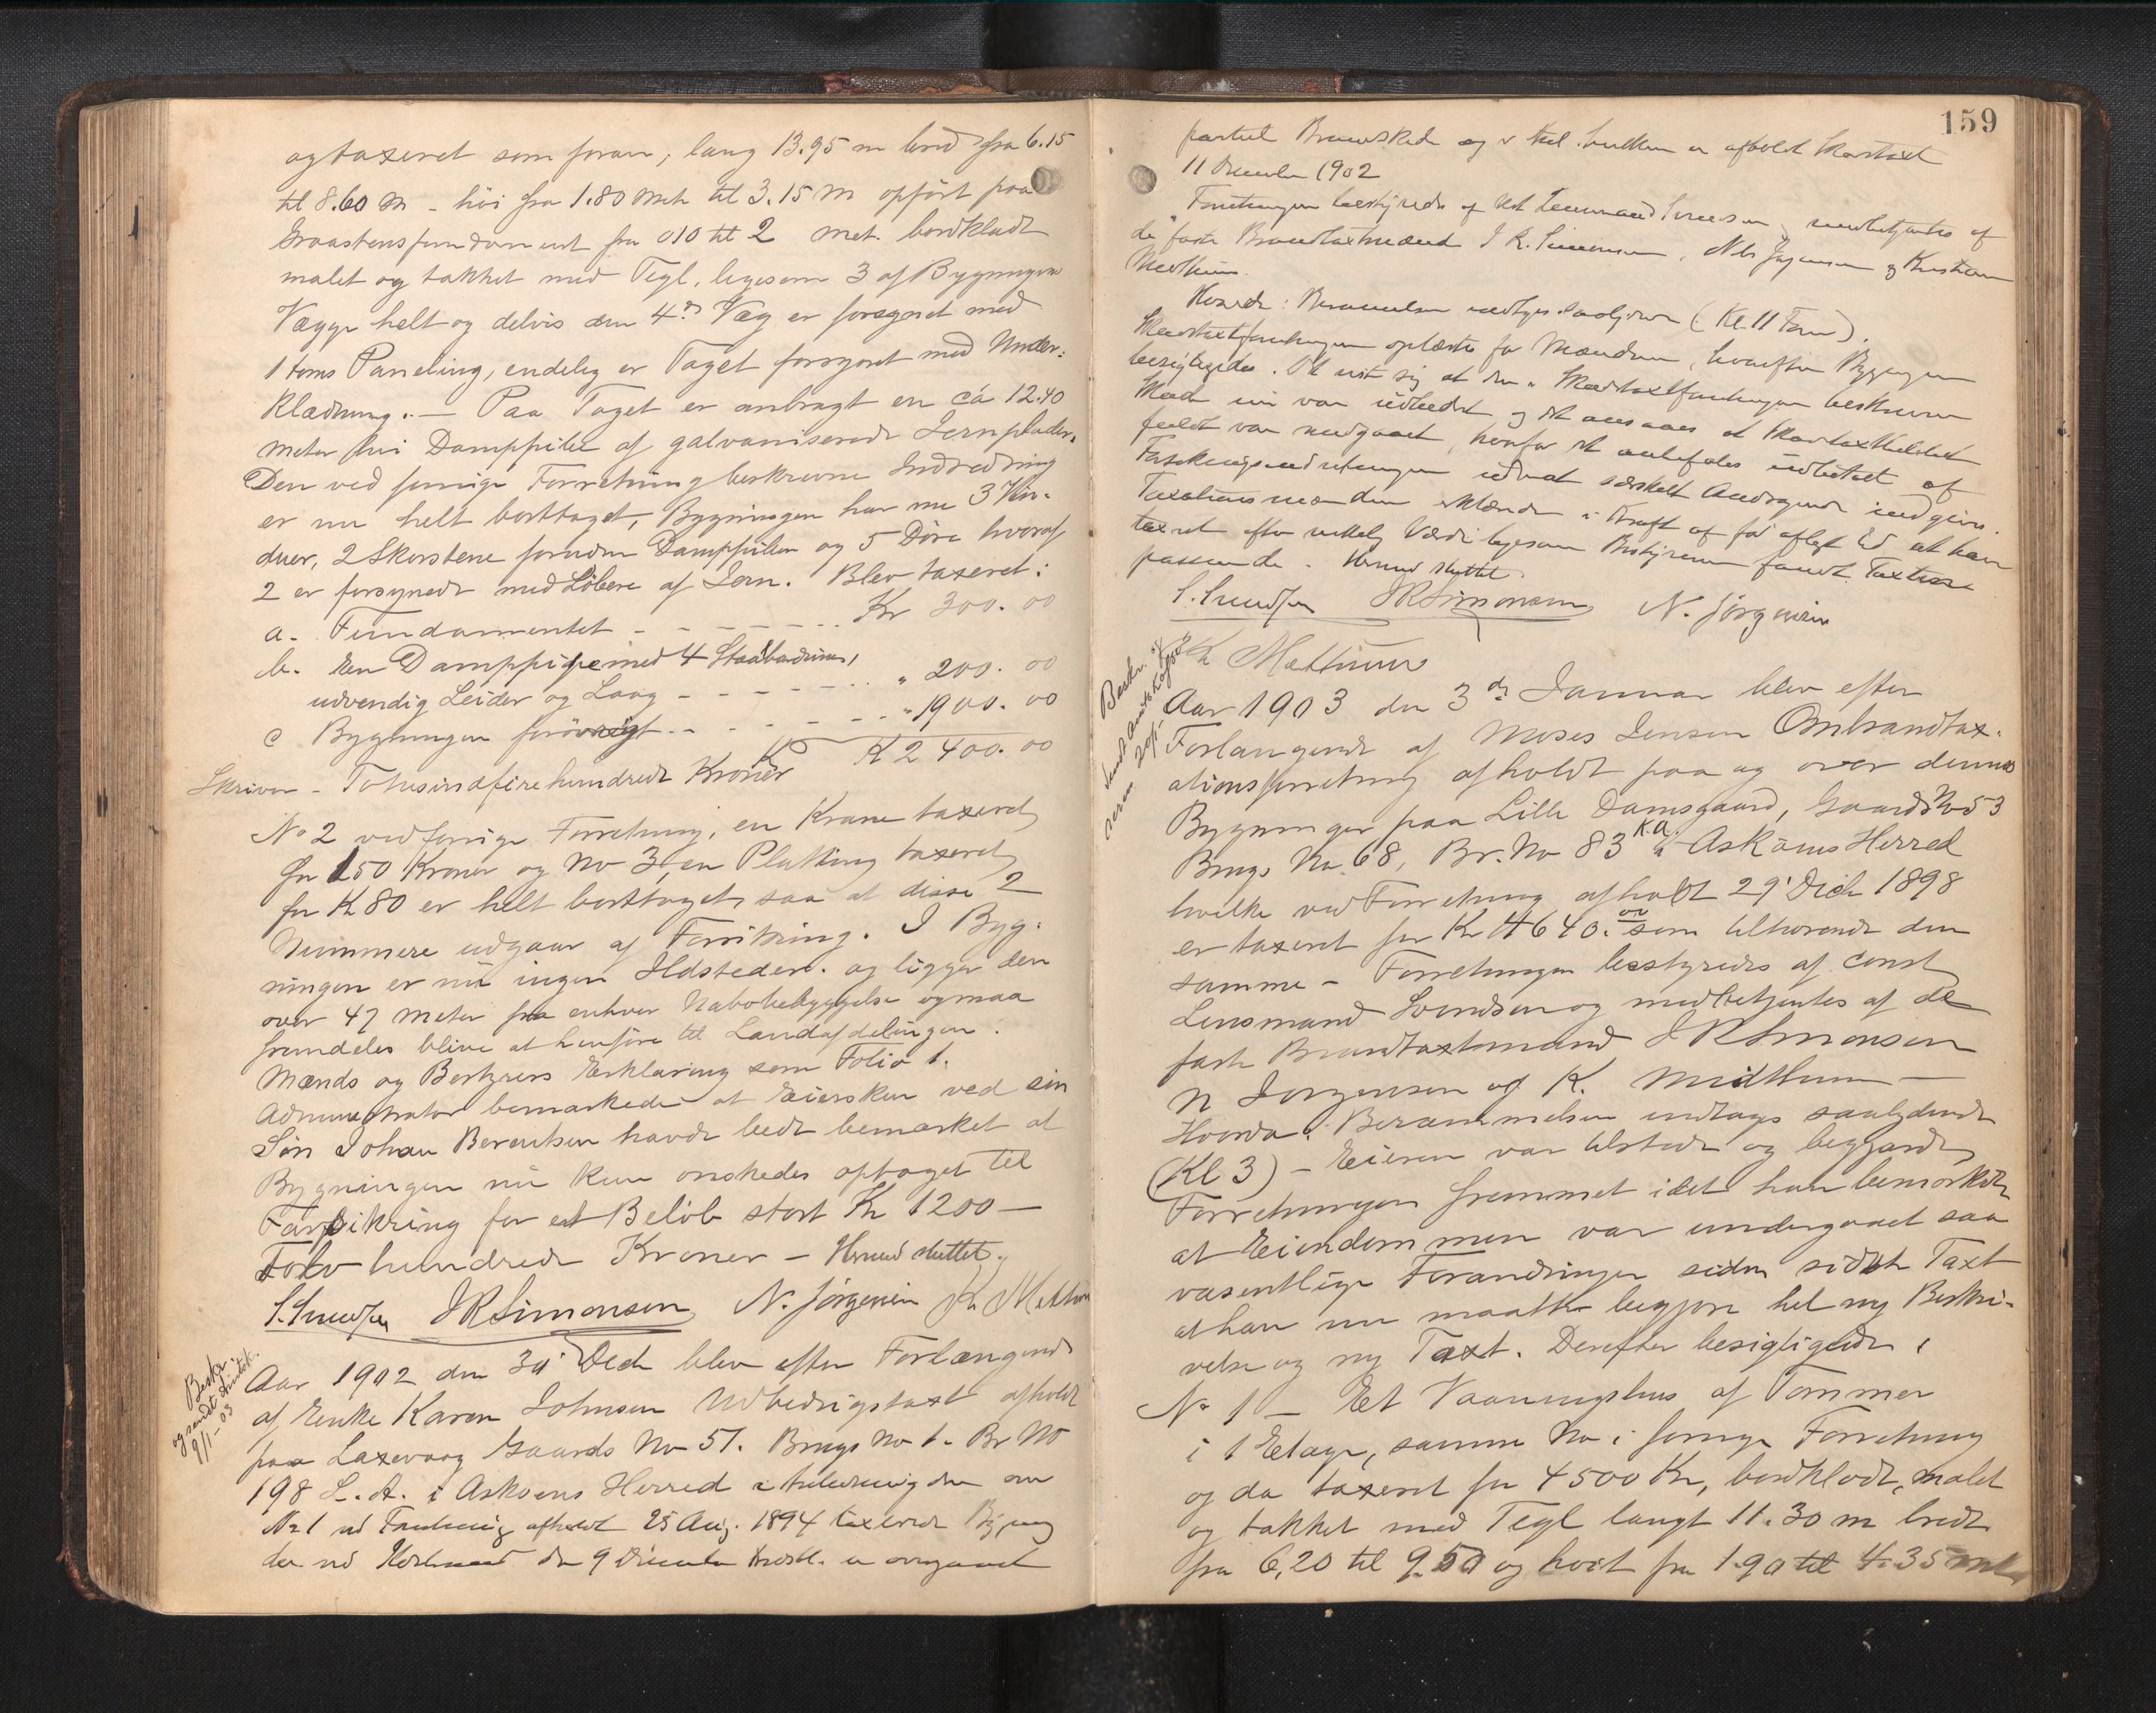 ogtaxeret som foran, lang 13.95 m bred fra 6.15
til 8.60 m - høi fra 1.80 met til 3.15 m opført paa
Graastensfundament fra 010 til 2 met. bordklædt
malet og takket med Tegl, ligesom 3 af Bygningens
Vægge helt og delvis den 4de Væg er forsynet med
1 toms Paneling, endelig er Taget forsynet med Under-
klædning. — Paa Taget er anbragt en ca 12.40
meter høi Damppibe af galvaniserede Jernplader.
Den ved forrige Forretning beskrevne Indredning
er nu helt borttaget, Bygningen har nu 3 Vin-
duer, 2 Skorstene foruden Damppiben og 5 Døre hvoraf
2 er forsynede med Løbere af Jern. Blev taxeret:
a. Fundamentet - - - - - - Kr 300.00
b. Een Damppipe med 4
udvendig Leider og Laag - - - - - " 200.00
c Bygningen forøvrigt - - - - - " 1900.00
K 2400.00
Skriver - Totusindfirehundrede Kroner
No 2 ved forrige Forretning, en Kran taxeret
for 150 Kroner og No 3, en Platting taxeret
for Kr 80 er helt borttaget, saa at disse 2
Nummere udgaar af Forsikring. I Byg-
ningen er nu ingen Ildsteder. og ligger den
over 47 meter fra enhver Nabobebyggelse og maa
fremdeles blive at henføre til Landafdelingen.
Mænds og Bestyrers Erklæring som Folio 1.
Administrator bemærkede at Eiersken ved sin
Søn Johan Berentsen havde bedt bemærket at
Bygningen nu kun ønskedes optaget til
Forsikring for et Beløb stort Kr 1200 —
Tolv hundrede Kroner - Hermed sluttet.
JRSimonsen N. Jørgensen
Beskr.
og sendt
9/1-03
Aar 1902 den 30 Dech blev efter Forlangende
af Enke Karen Johnsen Udbedrigstaxt afholdt
paa Laxevaag Gaards No 51. Brugs No 1. Br No
198 L. A. i Askøens Herred i Anledning den
No 1 ved Forretning afholdt 25 Aug. 1894 taxerede Bygning
der ved den 9 December er overgaaet
159
partiel Brandskade og er afholdt Skadetaxt
11 December 1902
Forretningen bestyredes af medbetjentes af
de faste Brandtaxtmænd J R. Simonsen, Nils Jørgensen og Kristian
Hvorda: Berammelsen indtages saalydende (Kl. 11 Form).
Skadetaxtforretningen oplæstes for Mændene, hvorefter Bygningen
besigtigedes. Det viste sig at den i Skadetaxtforretningen beskrevne
Skade nu var udbedret og det ansaaes at Skadetaxtbeløbet
fuldt var medgaaet, hvorfor det anbefales udbetalt af
Forsikringsindretningen uden at særskilt Andragende indgives.
Taxationsmændene erklærede i Kraft af før aflagt Ed at have
taxeret efter virkelig Værdi ligesom Bestyreren fandt Taxten
passende. Hermed sluttet.
JRSimonsen N. Jørgensen
Beskr. og
sendt
20/1
Aar 1903 den 3de Januar blev efter
Forlangende af Moses Jensen Ombrandtax-
ationsforretning afholdt paa og over dennes
Bygninger paa Lille Damsgaard, Gaards No 53
Brugs No. 68, Br. No 83 K.a. i Askøens Herred
hvilke ved Forretning afholdt 29 Dech 1898
er taxeret for Kr 4640.00 som tilhørende den
samme - Forretningen bestyredes af const
Lensmand Svendsen og medbetjentes af de
faste Brandtaxtmænd J R Simonsen
N Jørgensen og K. Midthun —
Hvorda: Berammelsen indtages saalydende
(Kl 3) - Eieren var tilstede og begjærede
Forretningen fremmet idet han bemærkede
at Eiendommen var undergaaet saa
væsentlige Forandringer siden sidste Taxt
at han nu maatte begjære hel ny Beskri-
velse og ny Taxt. Derefter besigtigedes:
No 1 - Et Vaaningshus af Tømmer
i 1 Etage, samme No i forrige Forretning
og da taxeret for 4500 Kr, bordklædt, malet
og takket med Tegl langt 11.30 m bredt
fra 6,20 til 9.50 og høit fra 1.90 til 4.35 met